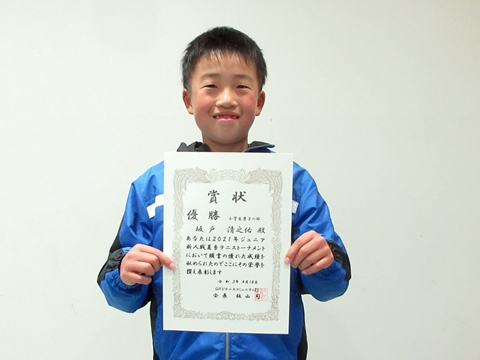 賞状
優勝 小学生男子の部
坂戸 清之佑 殿
あなたは2021年ジュニア
新人戦夏季テニストーナメント
において頭書の優れた成績を
収められたのでここにその栄誉を
讃え表彰します
令和3年4月18日
会長 板山